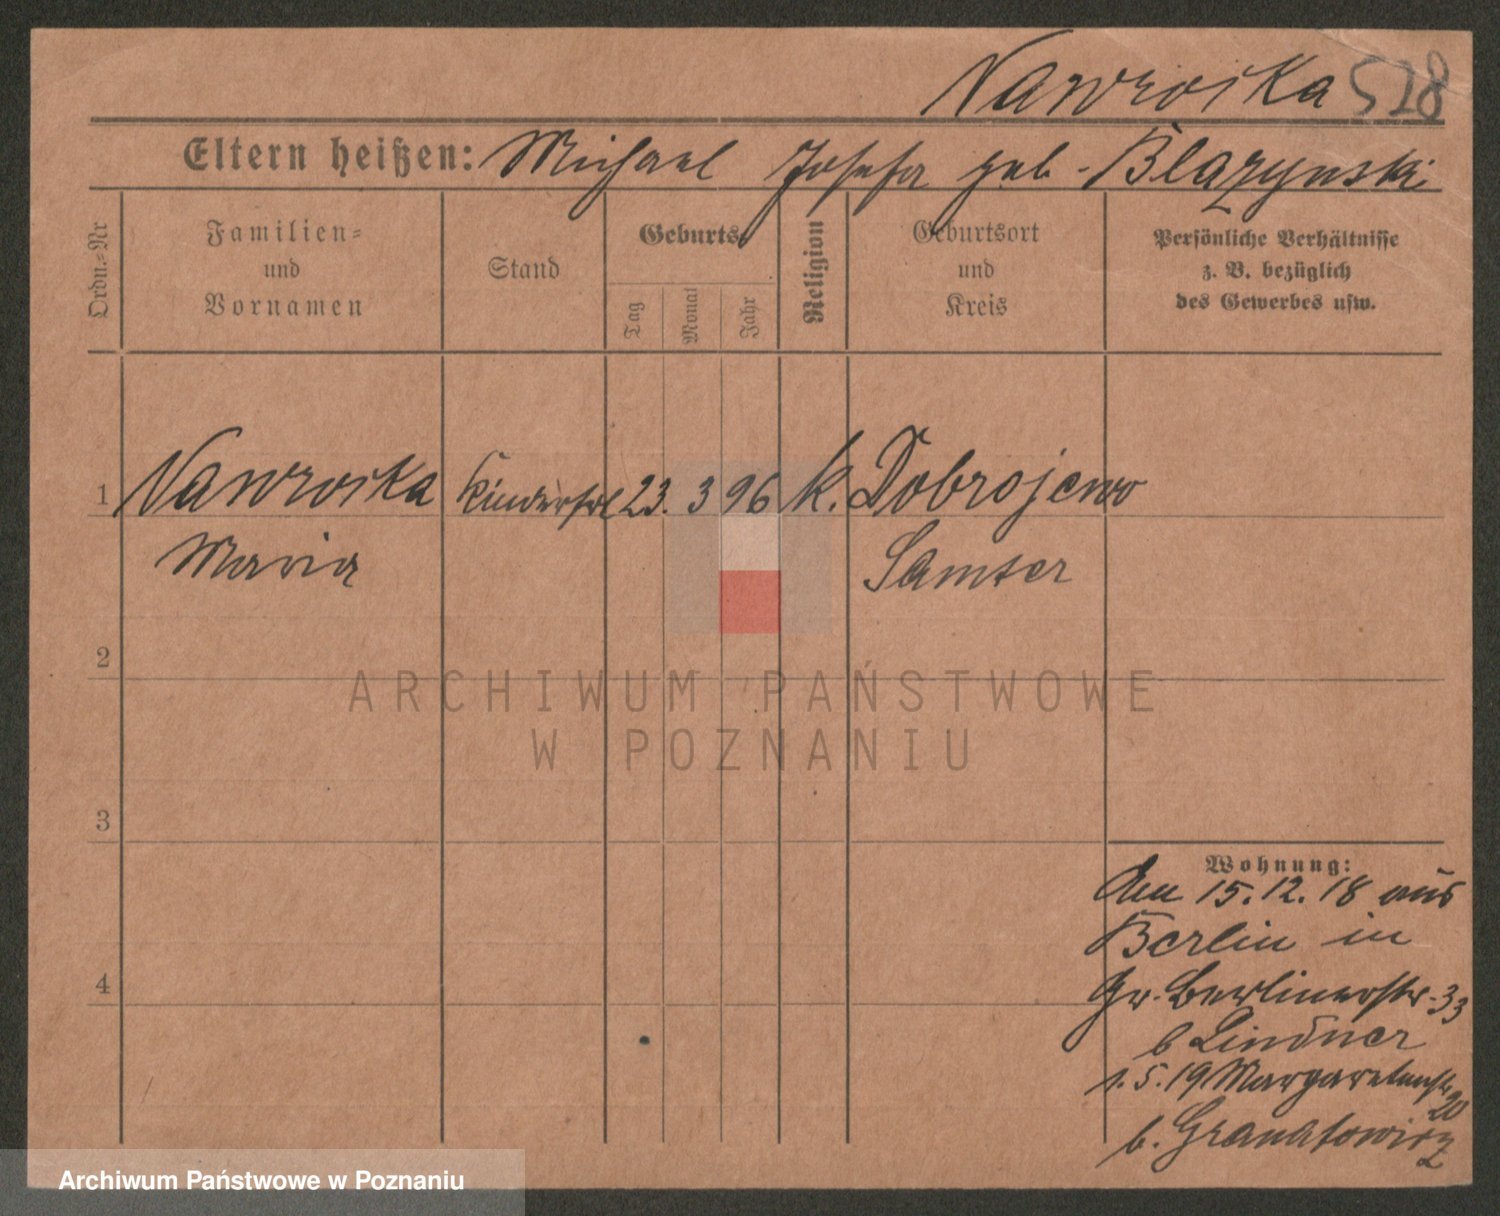 Nawroska 528
Eltern heißen: Michael Josefa geb. Blazynski
Ordn.-Nr
Familien-
und
Vornamen
Stand
Geburts-
Tag
Monat
Jahr
Religion
Geburtsort
und
Kreis
Persönliche Verhältnisse
z. B. bezüglich
des Gewerbes usw.
1 Nawroska Kinderfrl 23. 3 96 k. Dobrojewo
Maria Samter
2
3
4
Wohnung:
Am 15.12.18 aus
Berlin in
Gr. Berlinerstr. 33
b Lindner
1.5.19 Margaretenstr
20
b. Granatowicz
ARCHIWUM PAŃSTWOWE
W POZNANIU
Archiwum Państwowe w Poznaniu